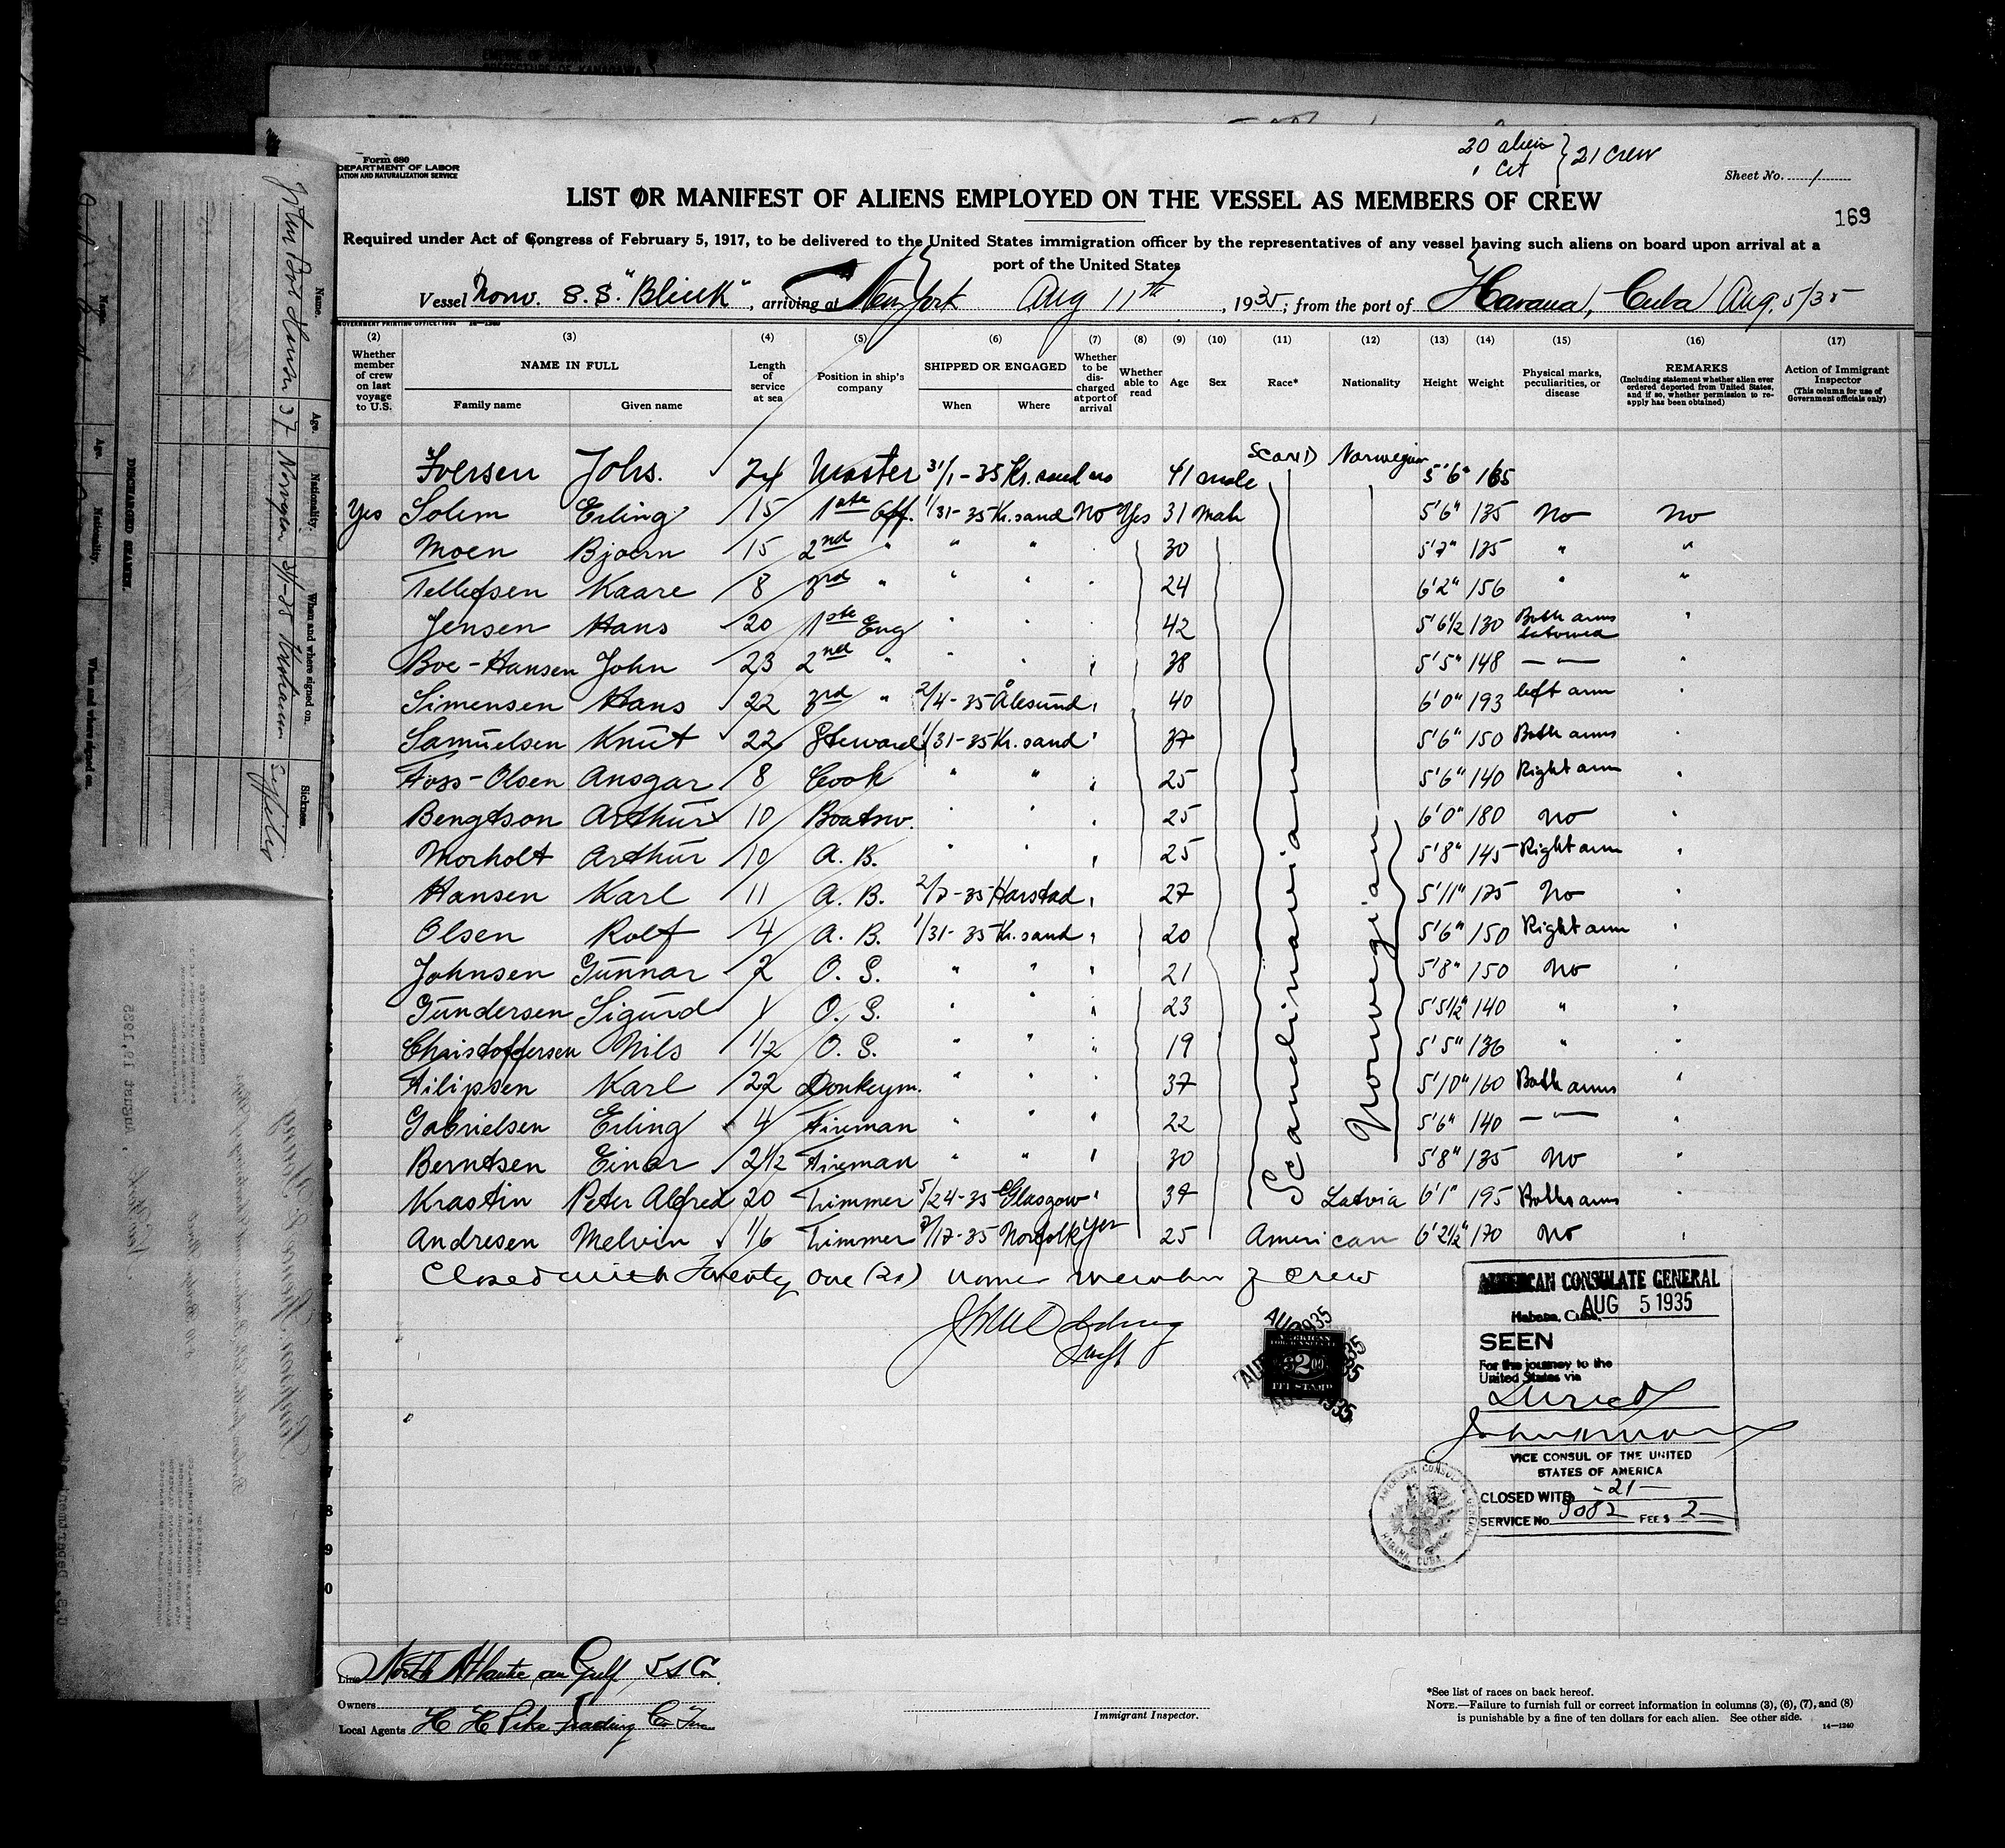 20 alien
1 Cit } 21 crew
Form 680
DEPARTMENT OF LABOR
ATION AND NATURALIZATION SERVICE
Sheet No. 1
LIST OR MANIFEST OF ALIENS EMPLOYED ON THE VESSEL AS MEMBERS OF CREW
169
Required under Act of Congress of February 5, 1917, to be delivered to the United States immigration officer by the representatives of any vessel having such aliens on board upon arrival at a
port of the United States
Vessel Norw. S.S. "Blink", arriving at New York Aug 11th, 1935; from the port of Havana, Cuba Aug. 5/35
GOVERNMENT PRINTING OFFICE
(2) (3) (4) (5) (6) (7) (8) (9) (10) (11) (12) (13) (14) (15) (16) (17)
Whether member of crew on last voyage to U.S. NAME IN FULL Family name Given name Length of service at sea Position in ship's company SHIPPED OR ENGAGED When Where Whether to be discharged at port of arrival Whether able to read Age Sex Race* Nationality Height Weight Physical marks, peculiarities, or disease REMARKS (Including statement whether alien ever ordered deported from United States, and if so, whether permission to reapply has been obtained) Action of Immigrant Inspector (This column for use of Government officials only)
Iversen Johs. 24 Master 31/1-35 Kr.sand no 41 male Scand Norwegian 5'6" 165
Yes Solem Erling 15 1ste Off. 1/31-35 Kr.sand No Yes 31 Male 5'6" 135 No No
Moen Bjoern 15 2nd " " " " 30 5'7" 135 " "
Tellefsen Kaare 8 3rd " " " " 24 6'2" 156 " "
Jensen Hans 20 1ste Eng " " " 42 5'6½ 130 Both arms tatowed "
Boe-Hansen John 23 2nd " " " " 38 5'5" 148 — " — "
Simensen Hans 22 3rd " 2/4-35 Ålesund " 40 6'0" 193 left arm "
Samuelsen Knut 22 Steward 1/31-35 Kr.sand " 37 5'6" 150 Both arms "
Foss-Olsen Ansgar 8 Cook " " " 25 5'6" 140 Right arm "
Bengtson Arthur 10 Boatsw. " " " 25 6'0" 180 No "
Morholt Arthur 10 A. B. " " " 25 5'8" 145 Right arm "
Hansen Karl 11 A. B. 2/7-35 Harstad " 27 5'11" 175 No "
Olsen Rolf 4 A. B. 1/31-35 Kr.sand " 20 5'6" 150 Right arm "
Johnsen Gunnar 2 O. S. " " " 21 5'8" 150 No "
Gundersen Sigurd 1 O. S. " " " 23 5'5½" 140 " "
Christoffersen Nils ½ O. S. " " " 19 5'5" 136 " "
Filipsen Karl 22 Donkeym. " " " 37 5'10" 160 Both arms "
Gabrielsen Erling 4 Fireman " " " 22 5'6" 140 — " — "
Berntsen Einar 2½ Fireman " " " 30 5'8" 135 No "
Krastin Peter Alfred 20 Trimmer 5/24-35 Glasgow " 37 Latvia 6'1" 195 Boths arms
Andresen Melvin 1/6 Trimmer 7/17-35 Norfolk Yes 25 American 6'2½" 170 No "
Scandinavian
Norwegian
Closed with Twenty one (21) names members of crew
AMERICAN CONSULATE GENERAL
AUG 5 1935
Habana, Cuba.
SEEN
For the journey to the
United States via
Direct
VICE CONSUL OF THE UNITED
STATES OF AMERICA
CLOSED WITH -21-
SERVICE No. 3082 FEE $ 2-
AMERICAN CONSULATE GENERAL
HABANA, CUBA
AMERICAN
$2.00
FEE STAMP
Line North Atlantic an Gulf S S Co.
Owners
Local Agents H H Pike Trading Co Inc
Immigrant Inspector.
*See list of races on back hereof.
NOTE.—Failure to furnish full or correct information in columns (3), (6), (7), and (8)
is punishable by a fine of ten dollars for each alien. See other side.
14—1240
Name. Age. Nationality. When and where signed on. Sickness.
John Boe Hansen 37 Norwegian 31/1-35 Kristiansand Syphilis
DISCHARGED SEAMEN.
Name. Age. Nationality. When and where signed on.
August 19, 1935
New York,
U.S. Department of